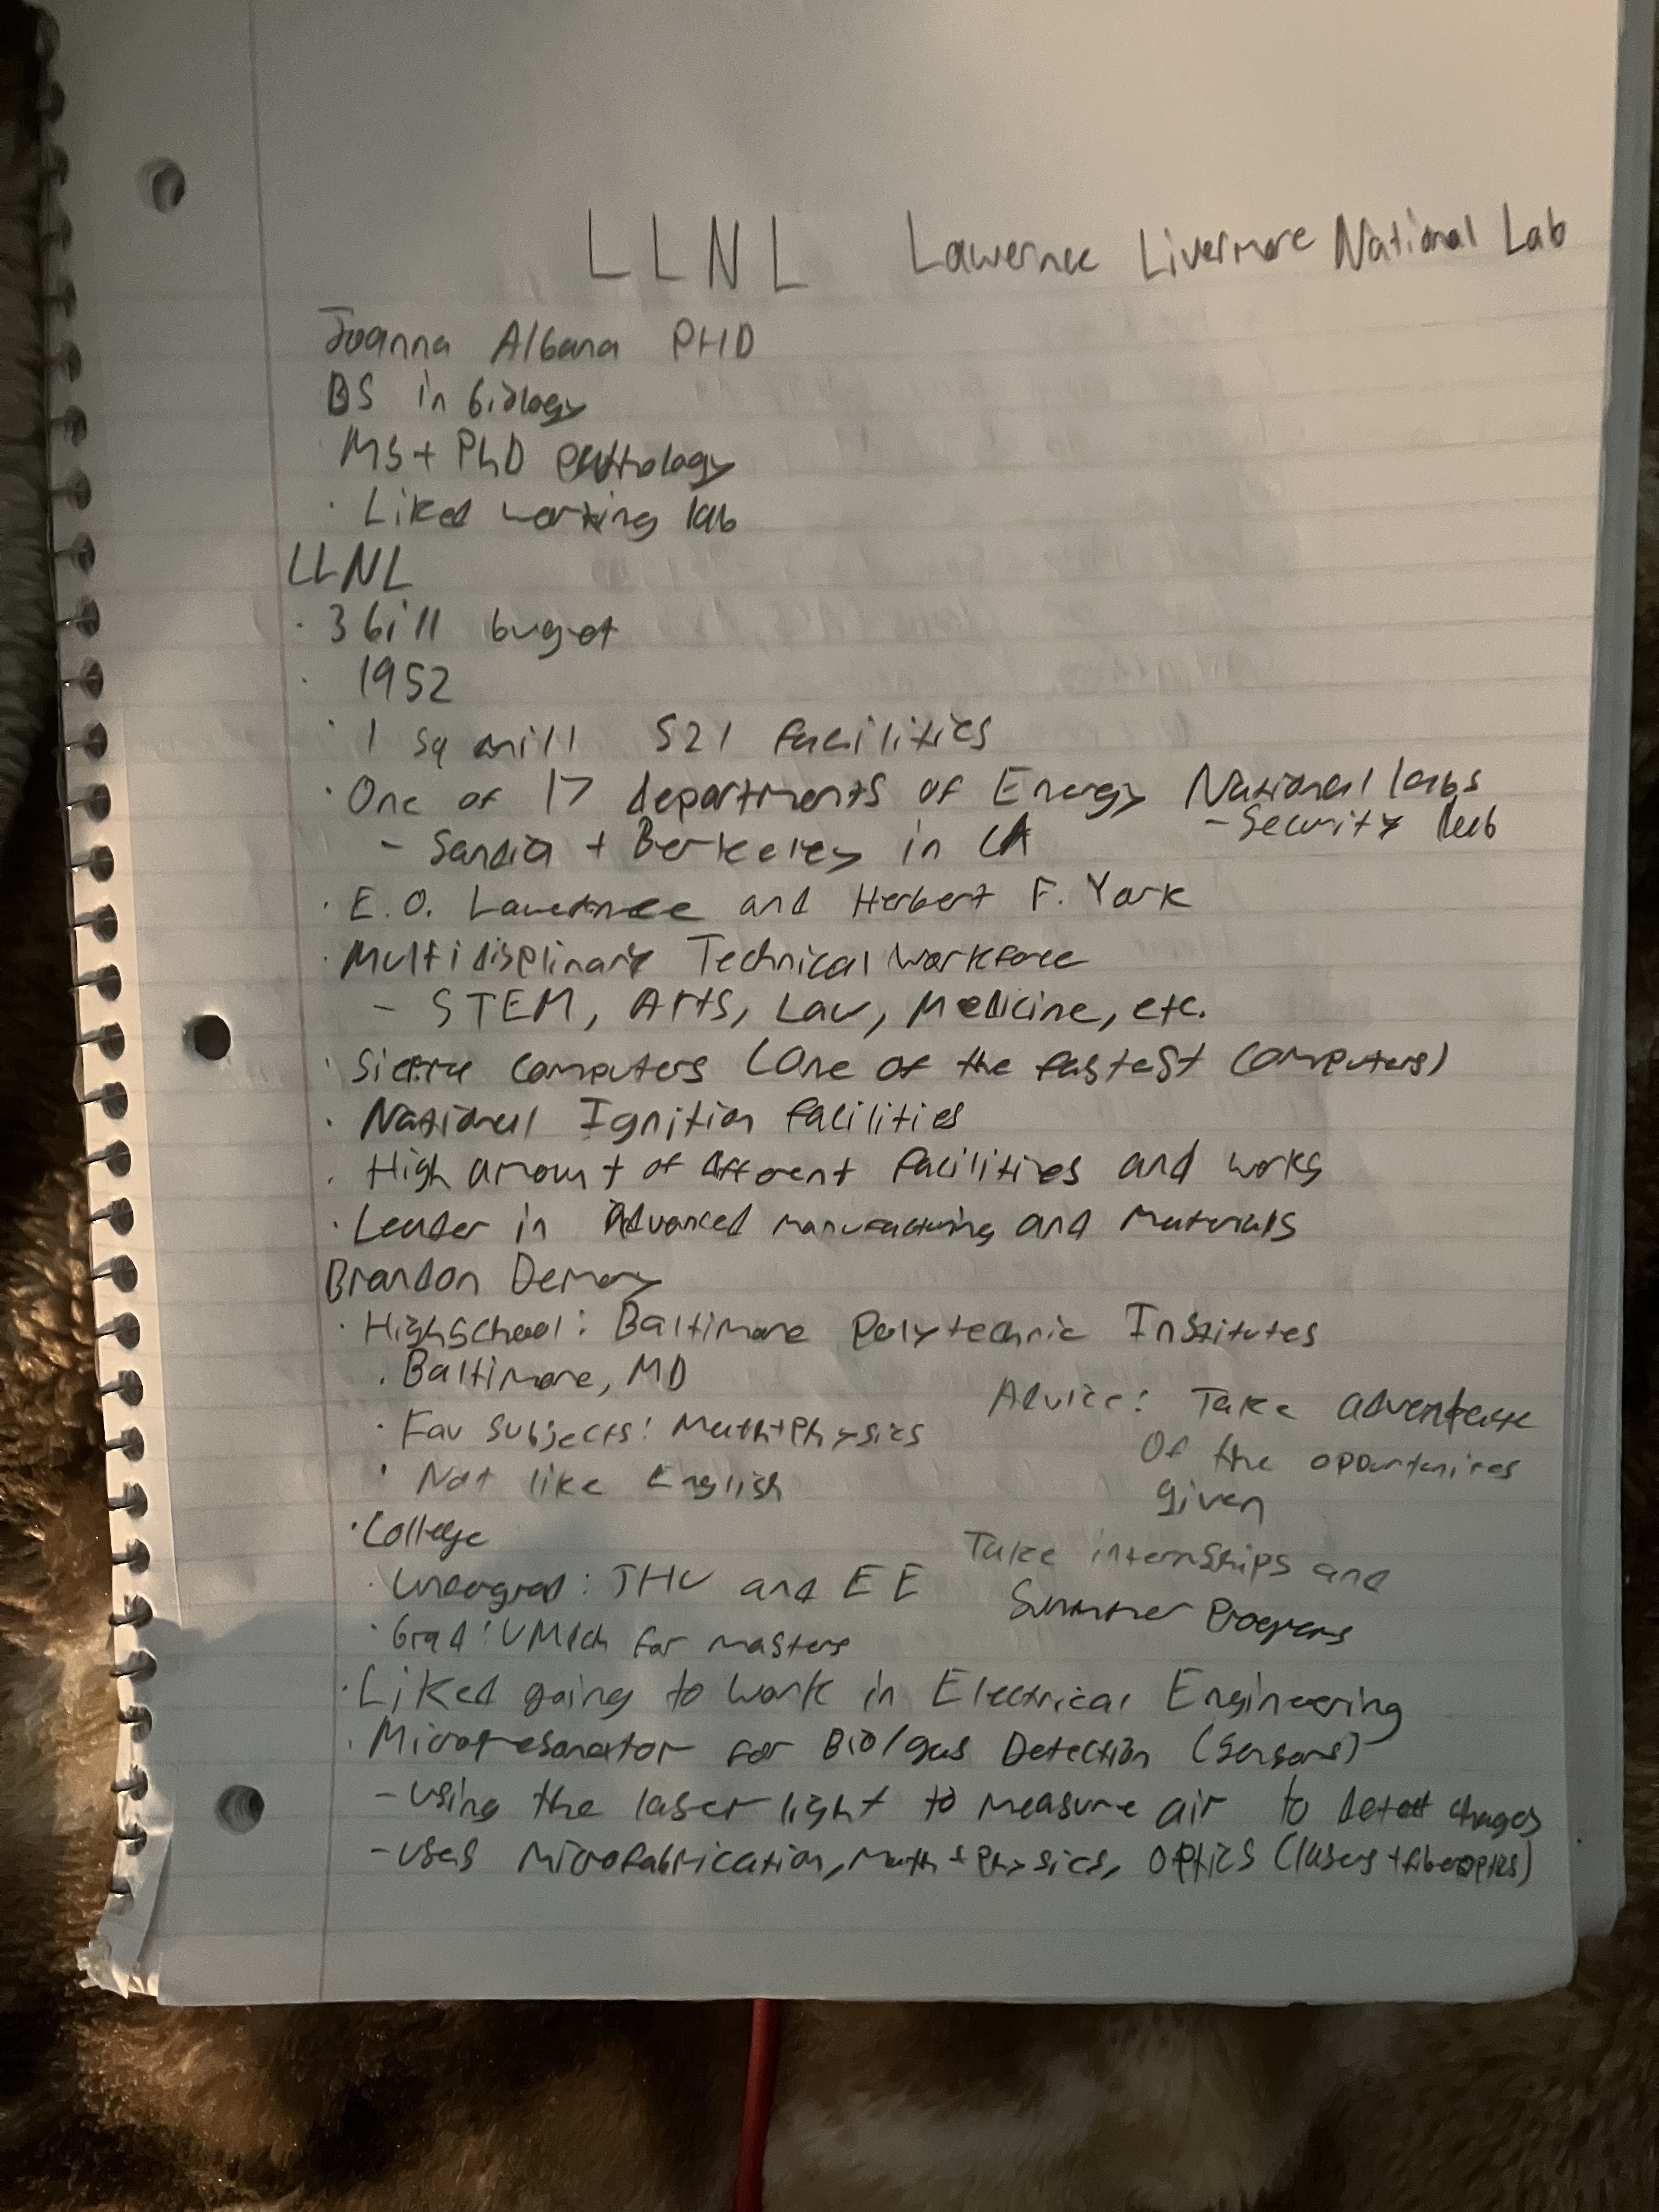 LLNL Lawernce Livermore National Lab
Joanna Albana PHD
BS in biology
MS + PhD pathology
· Liked working lab
LLNL
· 3 bill buget
· 1952
· 1 sq mill 521 facilities
· One of 17 departments of Energy National labs
- Sandia + Berkeley in CA - Security lab
· E.O. Lawernce and Herbert F. York
· Multidisplinary Technical workforce
- STEM, Arts, Law, Medicine, etc.
· Sierra computers (One of the fastest computers)
· National Ignition facilities
· High amount of different facilities and works
· Leader in Advanced manufacturing and Materials
Brandon Demory
· Highschool: Baltimore Polytechnic Institutes
· Baltimore, MD
· Fav subjects: Math + Physics
· Not like English
Advice: Take adventage
Of the oppurtenires
given
Take internships and
Summer Programs
· College
· Undergrad: JHU and EE
· Grad: UMich for masters
· Liked going to work in Electrical Engineering
· Microresonator for Bio/gas Detection (Sensors)
- using the laser light to measure air to detect chages
- uses microfabrication, Math + Physics, optics (lasers + fiberoptics)